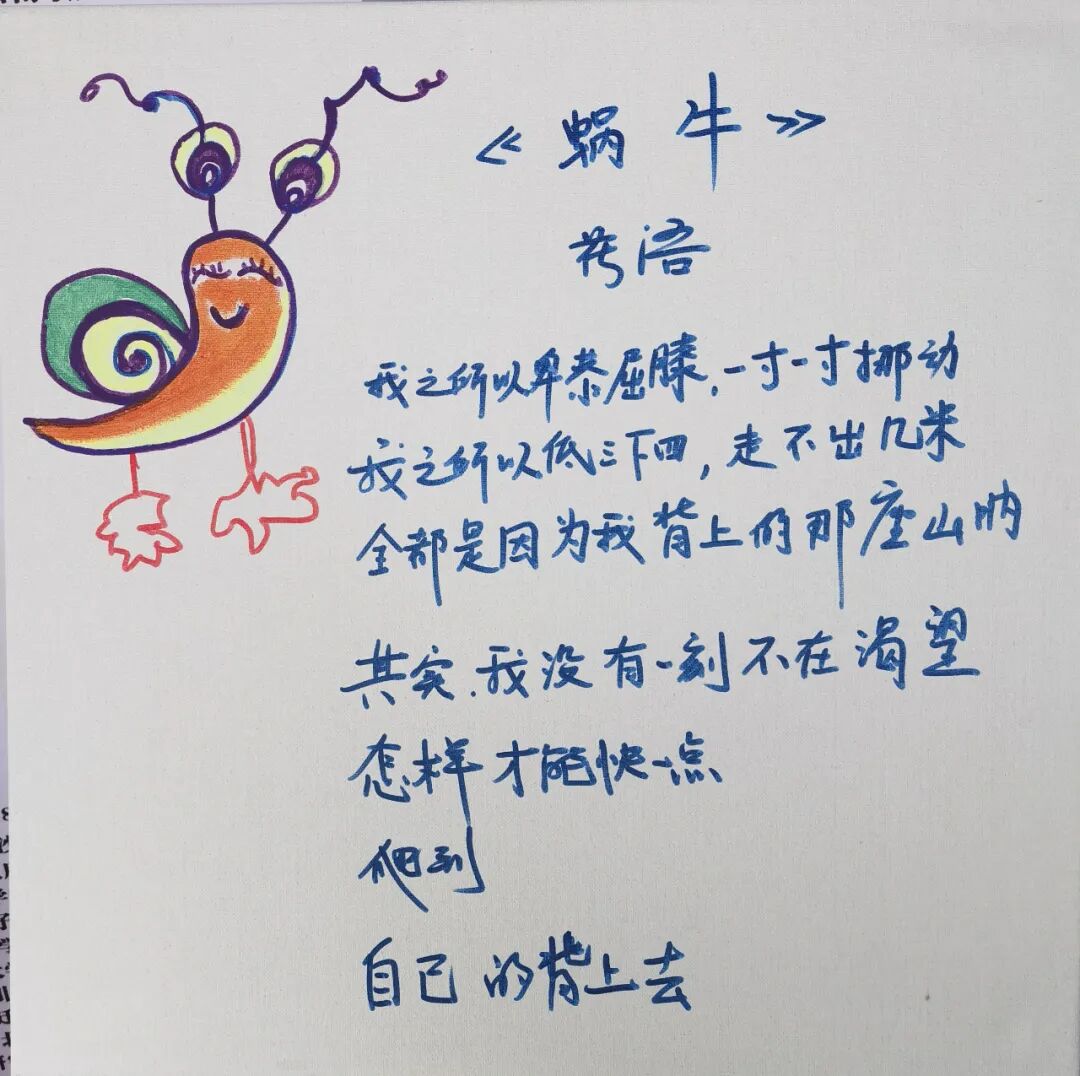 《蜗牛》
我之所以卑恭屈膝，一寸一寸挪动
我之所以低三下四，走不出几米
全都是因为我背上的那座山呐
其实，我没有一刻不在渴望
怎样才能快一点
爬到
自己的背上去